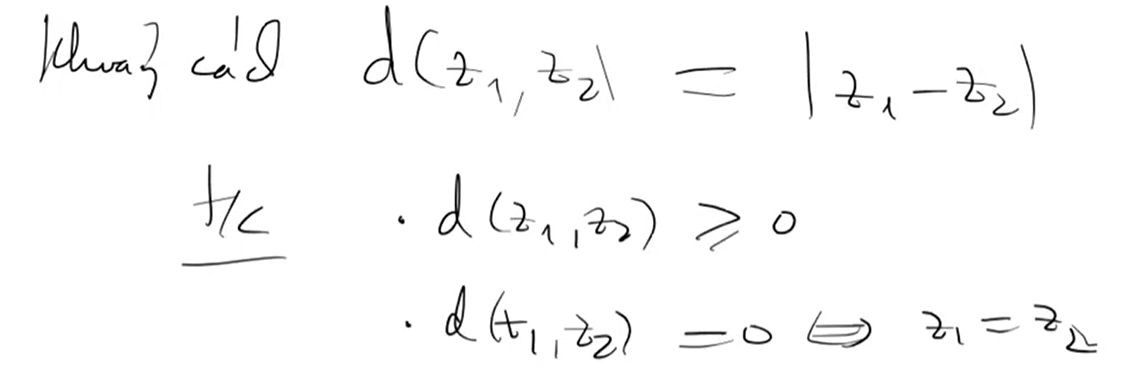 khoảng cách d(z₁, z₂) = |z₁ - z₂|
t/c · d(z₁, z₂) ⩾ 0
· d(z₁, z₂) = 0 ⇔ z₁ = z₂